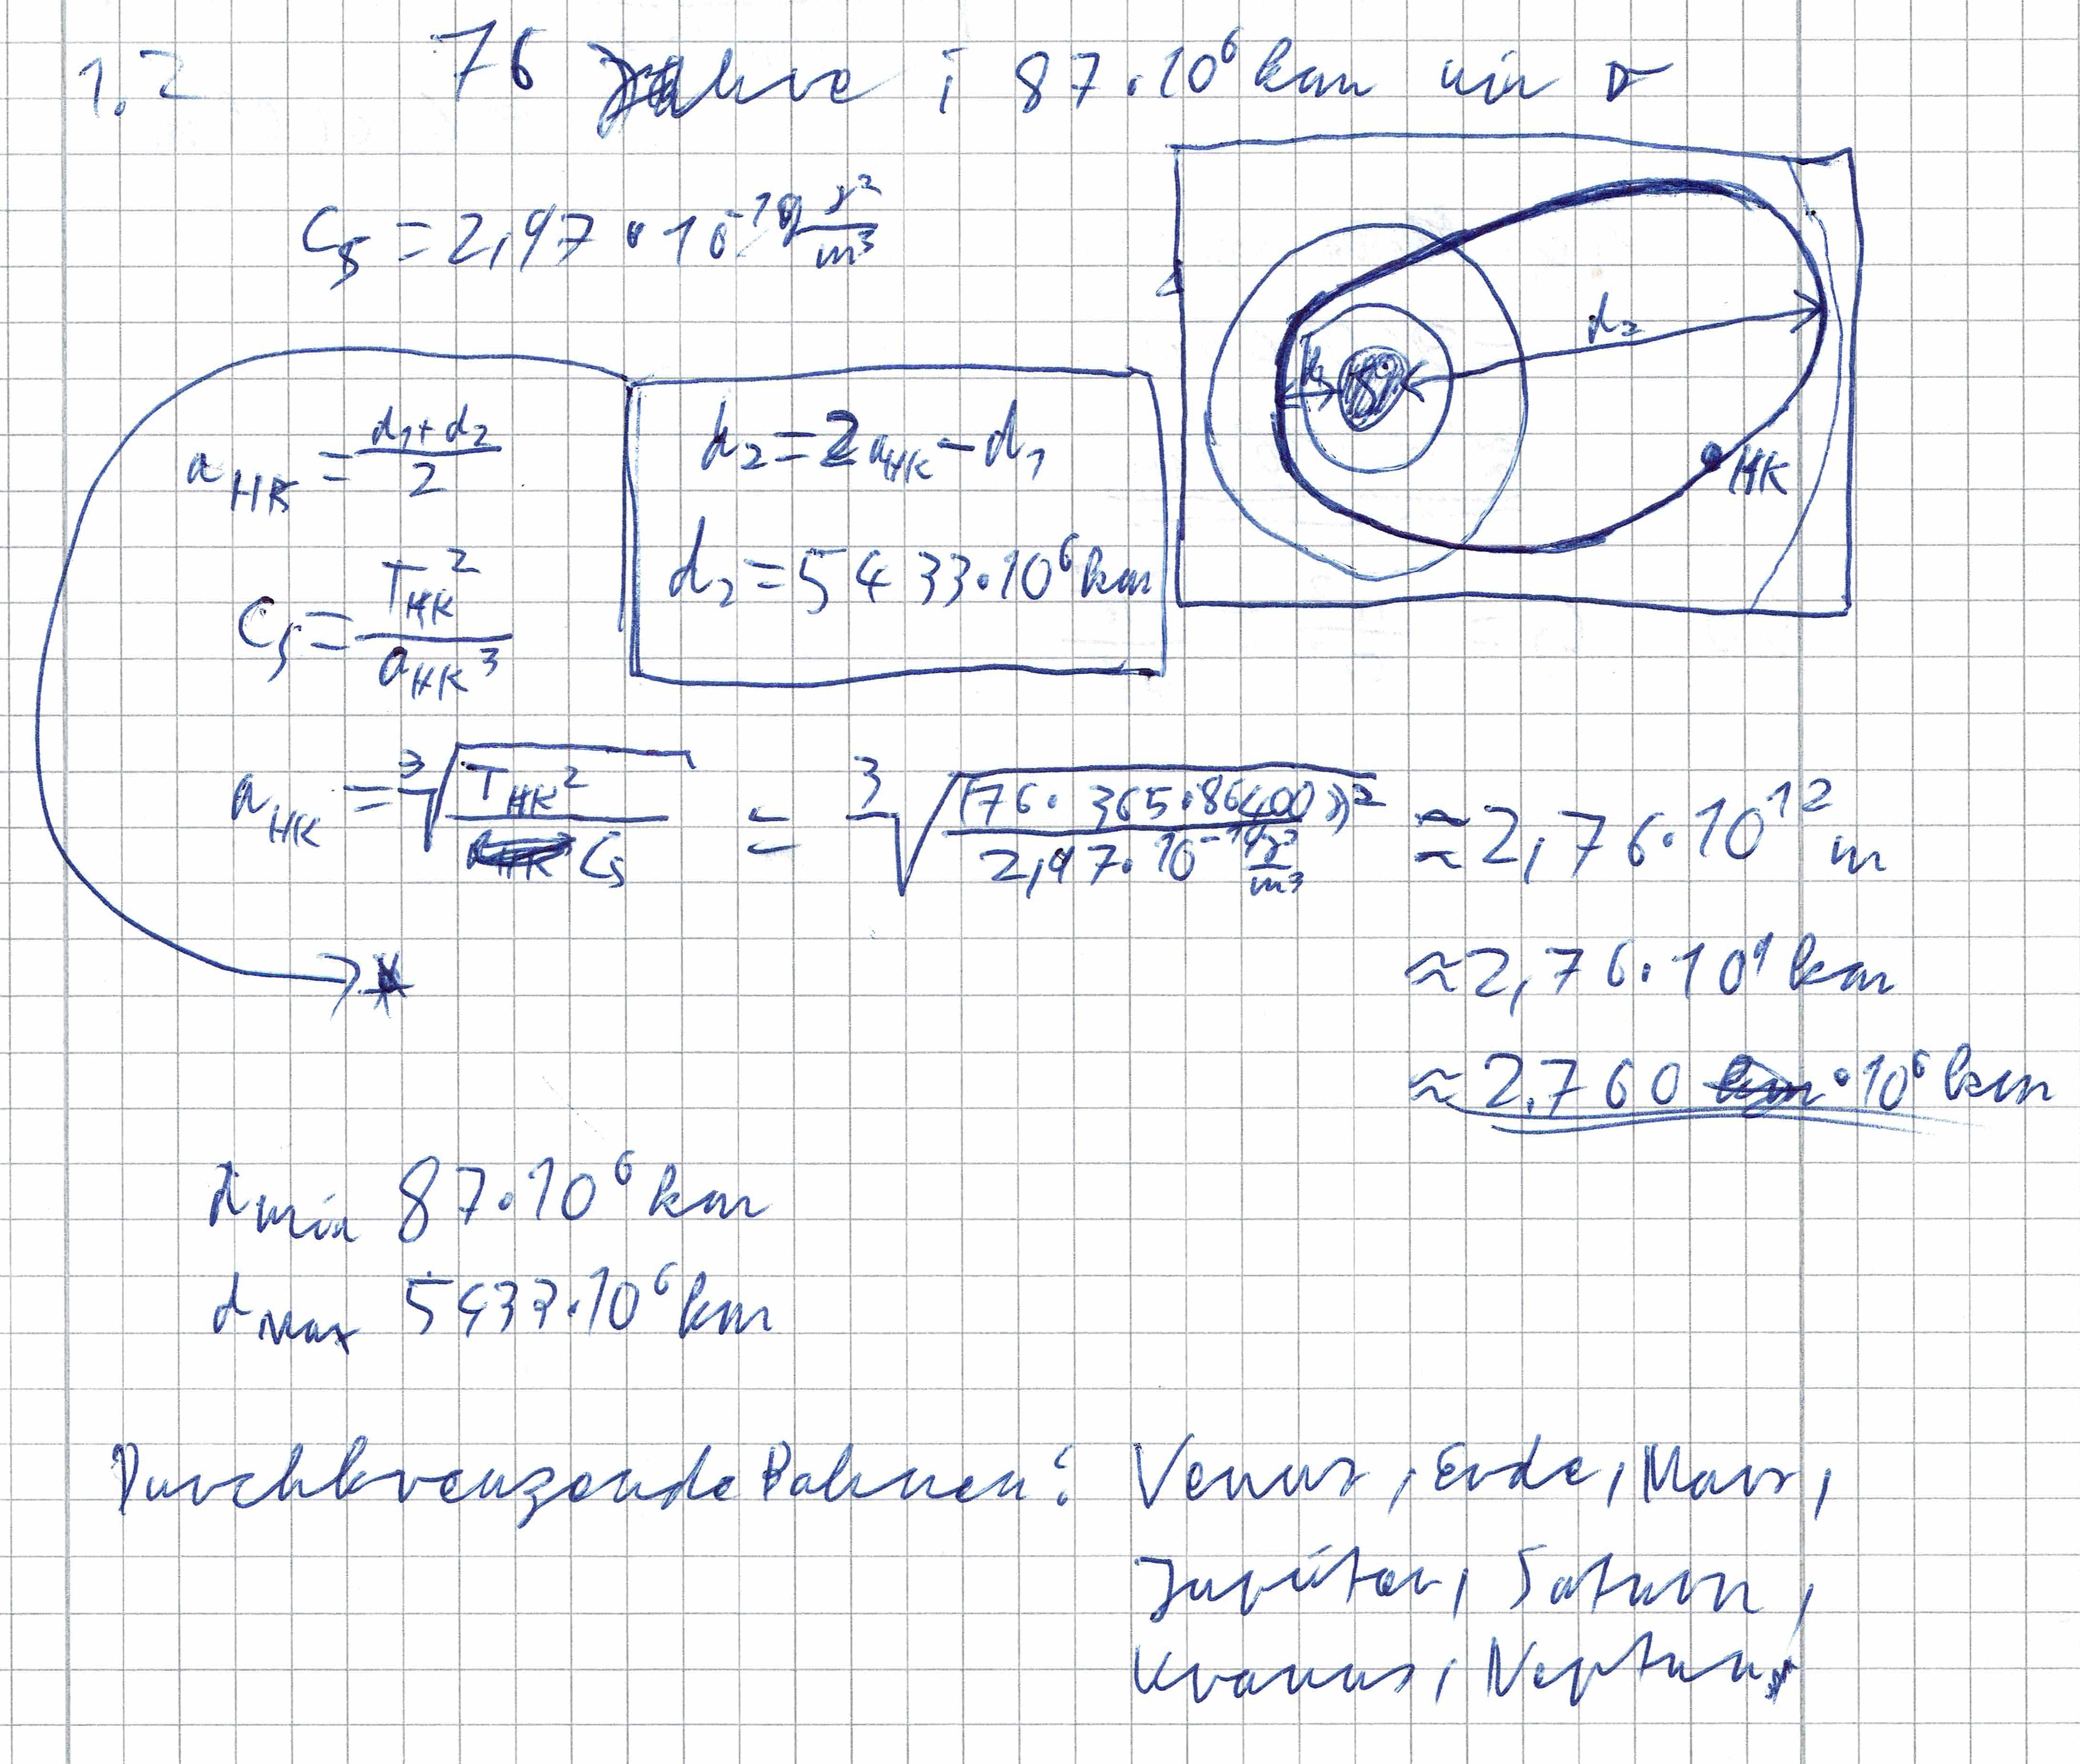 1.2 76 Jahre ; 87·10⁶ km min r
C_S = 2,97 · 10⁻¹⁹ s²/m³
d₂
d₁
S
HK
a_HK = (d₁+d₂)/2
d₂ = 2a_HK - d₁
d₂ = 5433·10⁶ km
C_S = T_HK²/a_HK³
a_HK = ³√(T_HK²/C_S) = ³√((76·365·86400 s)²/(2,97·10⁻¹⁹ s²/m³)) ≈ 2,76·10¹² m
≈ 2,76·10⁹ km
≈ 2.760 ·10⁶ km
d_min 87·10⁶ km
d_max 5433·10⁶ km
Durchkreuzende Bahnen: Venus, Erde, Mars,
Jupiter, Saturn,
Uranus, Neptun